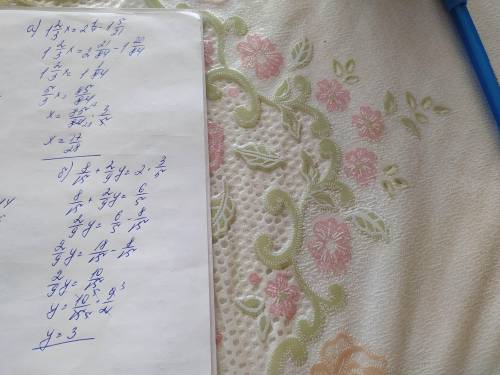 а) 1 2/3 x = 2 1/4 - 1 5/21
1 2/3 x = 2 21/84 - 1 20/84
1 2/3 x = 1 1/84
5/3 x = 85/84
x = 85/84 · 3/5
x = 17/28
б) 8/15 + 2/9 y = 2 · 3/5
8/15 + 2/9 y = 6/5
2/9 y = 6/5 - 8/15
2/9 y = 18/15 - 8/15
2/9 y = 10/15
y = 10/15 · 9/2
y = 3